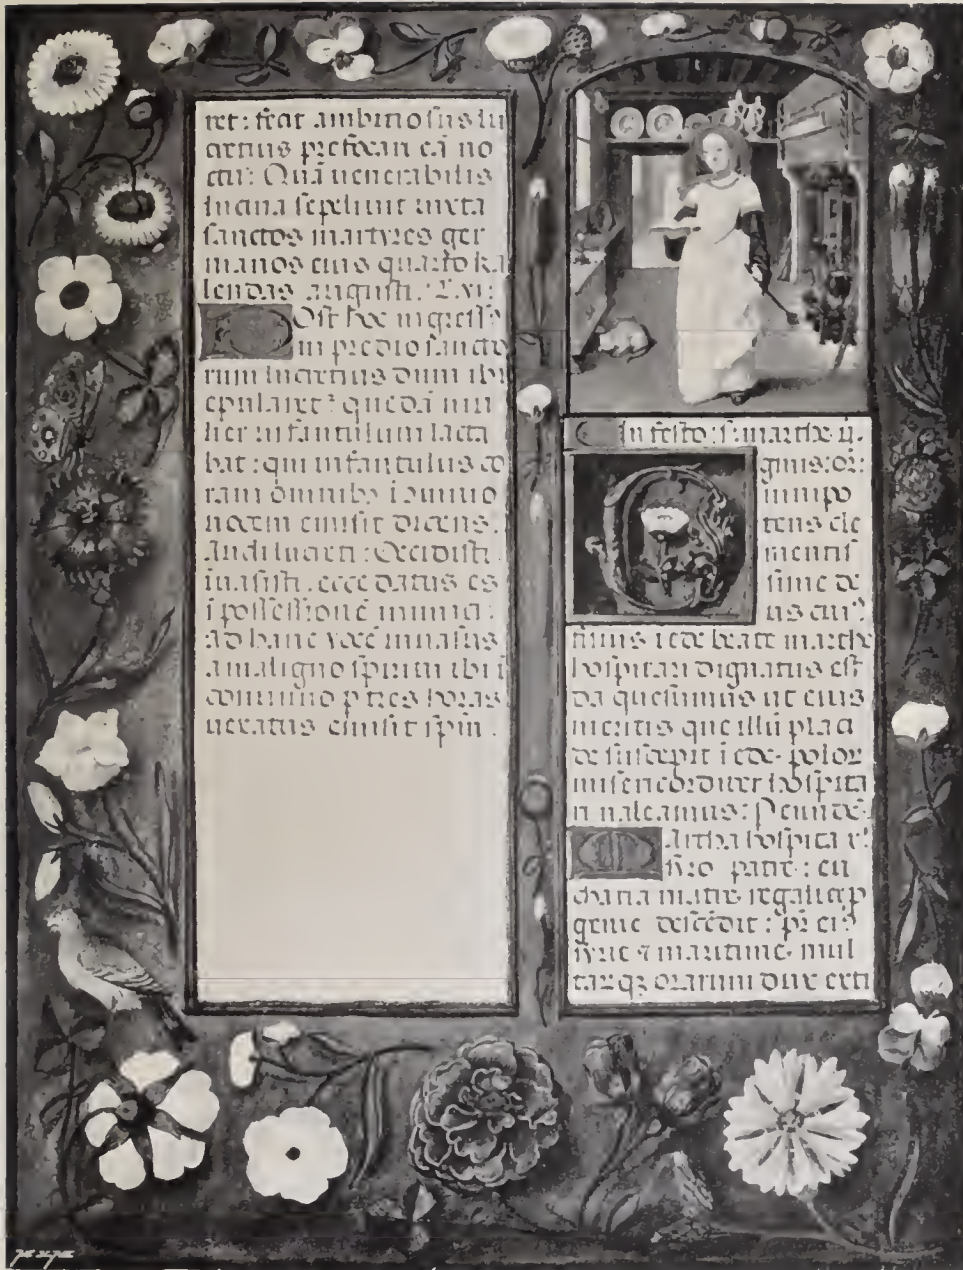 ret : fecit ambitiosus lu
cretius prefocari eā no
ctu : Quā uenerabilis
lucina sepeliuit iuxta
sanctos martyres ger
manos eius quarto ka
lendas augusti . L. vi :
Post hoc ingress⁹
in predio sancto
rum lucretius dum ibi
epularet² quedā mu
lier infantulum lacta
bat : qui infantulus co
ram omnib⁹ ī dīnio
uocem emisit dicens .
Audi lucreti : Occidisti
inuasisti . ecce datus es
ī possessionē inimici :
ad hanc vocē inuasus
a maligno spiritu ibi ī
conuiuio p tres horas
uexatus emisit spm̄ .
In festo : s. marthe ū .
ginis : or̄ :
Omnipo
tens cle
mentis
sime de
us cui⁹
filius ī ede beate marthe
hospitari dignatus est
da quesumus ut eius
meritis que illū placi
de suscepit ī ede . polor
misericorditer hospita
ri ualeamus : P eundē .
Martha hospita x̄
syro patre : eu
charia matre regali ex p
genie descēdit : pr̄ ei⁹
syrie ⁊ maritime mul
tarqȝ orarum dux exti